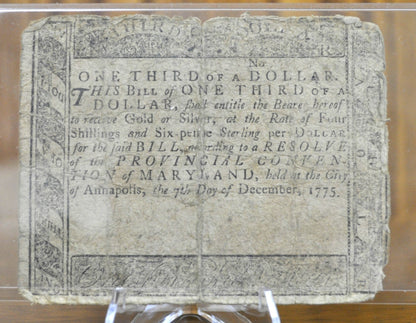 THIRD
No
ONE THIRD OF A DOLLAR.
THIS BILL of ONE THIRD OF A
DOLLAR, shall entitle the Bearer hereof
to receive Gold or Silver, at the Rate of Four
Shillings and Six-pence Sterling per DOLLAR
for the said BILL, according to a RESOLVE
of the PROVINCIAL CONVEN-
TION of MARYLAND, held at the City
of Annapolis, the 7th Day of December, 1775.